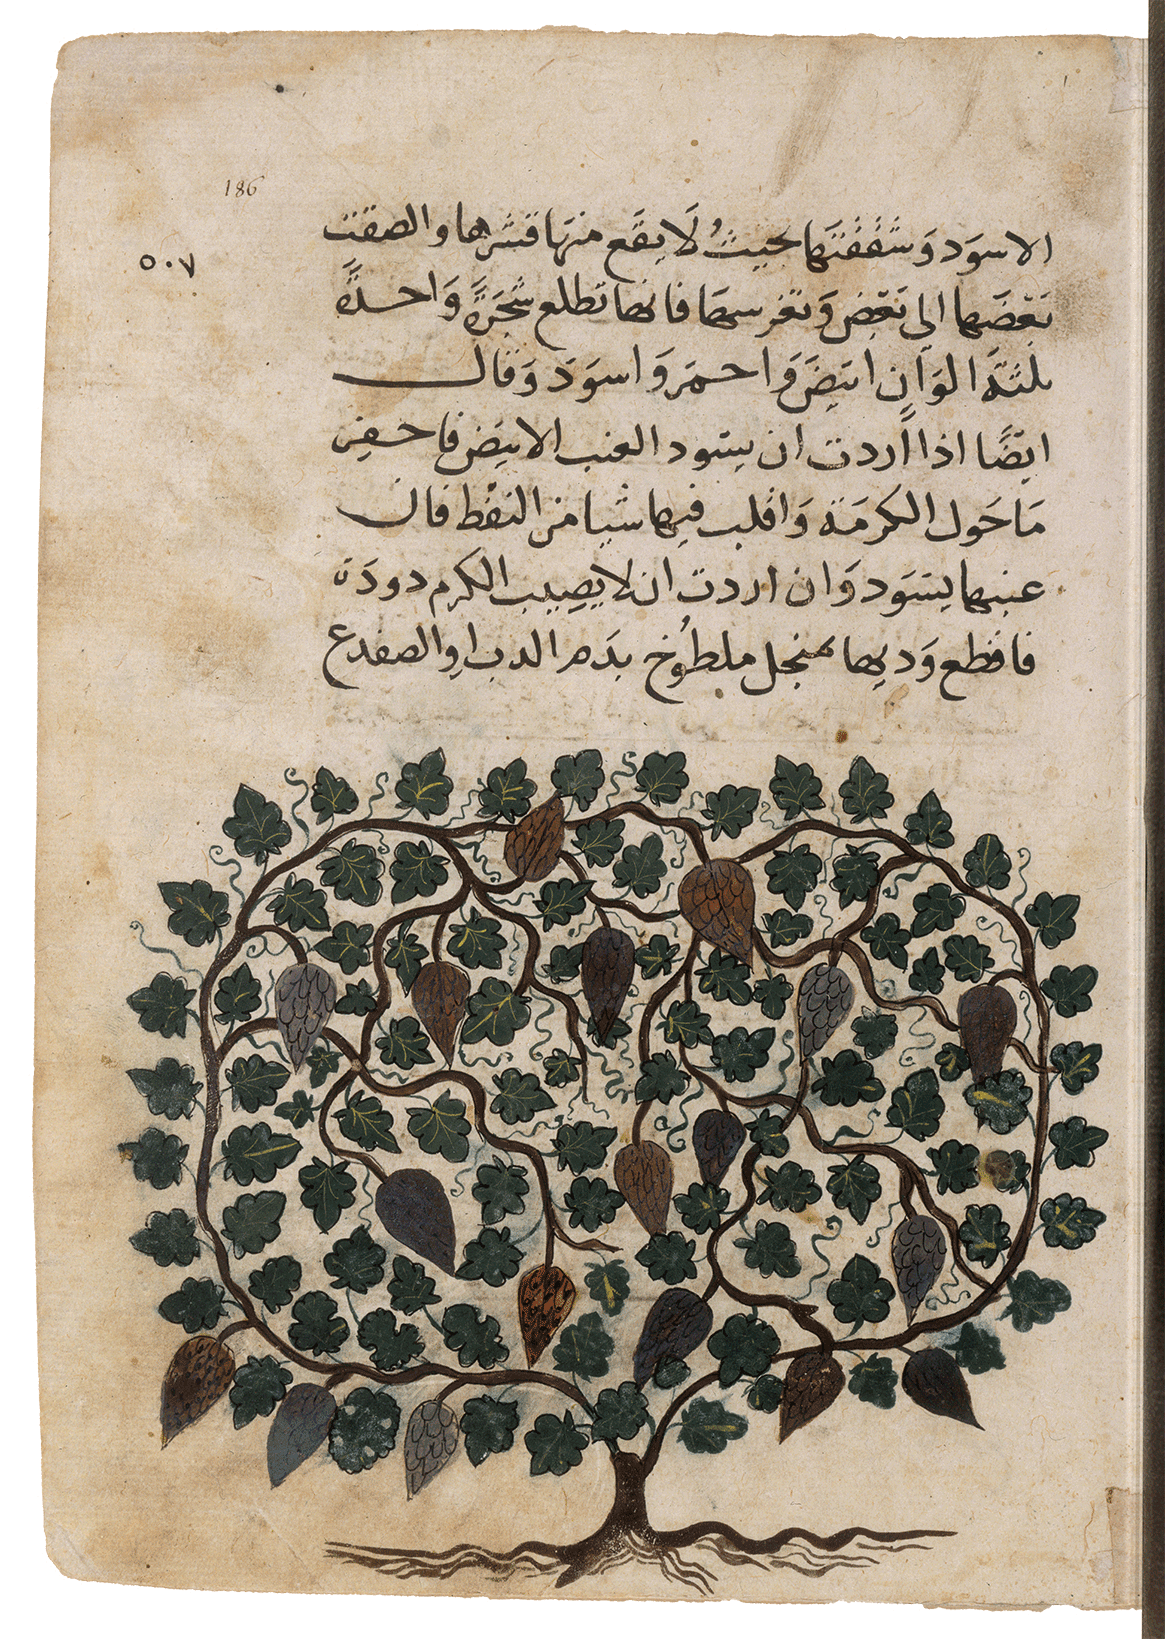 186
٥٠٧
الاسوَد وَشَفَفتَها بحيثُ لَا يقَع منهَا قشرها والصقت
بَعْضَها الى بَعْض وَتغرسهَا فانها تطلع شجَرَةً وَاحدةً
بثلثَة الوَانٍ ابيَض وَاحمَر وَاسوَد وَقال
ايضًا اذا اَردت ان يسَود العنب الابيَض فاحفر
مَا حَول الكرمَة وَاقلب فيها شيا من النفْط فان
عنبها يسَود وَان اردت ان لا يصيب الكرم دودَة
فاقطع وَديها بمنجل ملطُوخ بدَم الدب او الضفدع